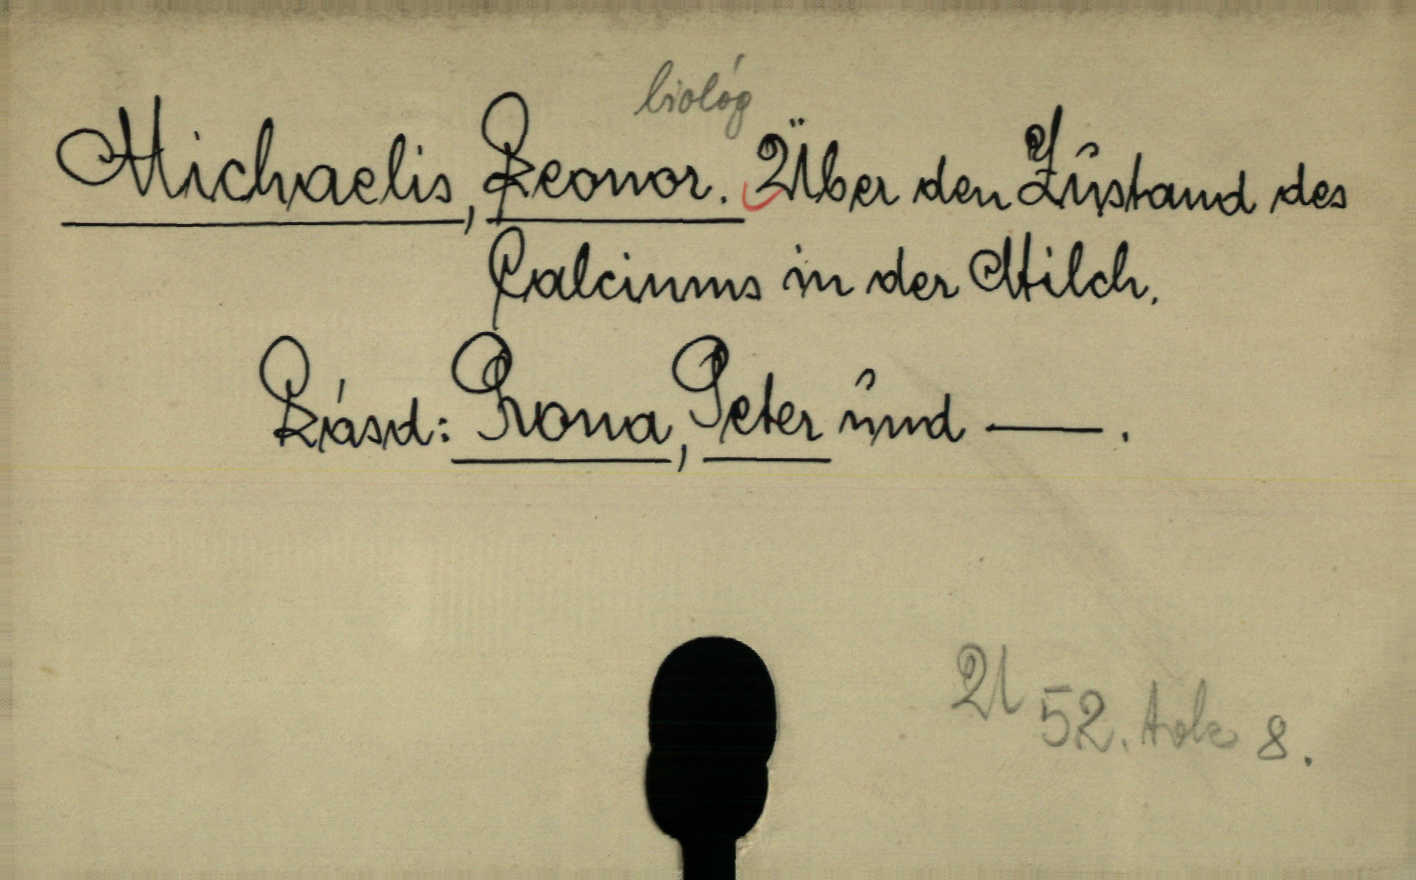 biológ
Michaelis, Leonor. Über den Zustand des
Calciums in der Milch.
Lásd: Rona, Peter und —.
U 52. tok 8.